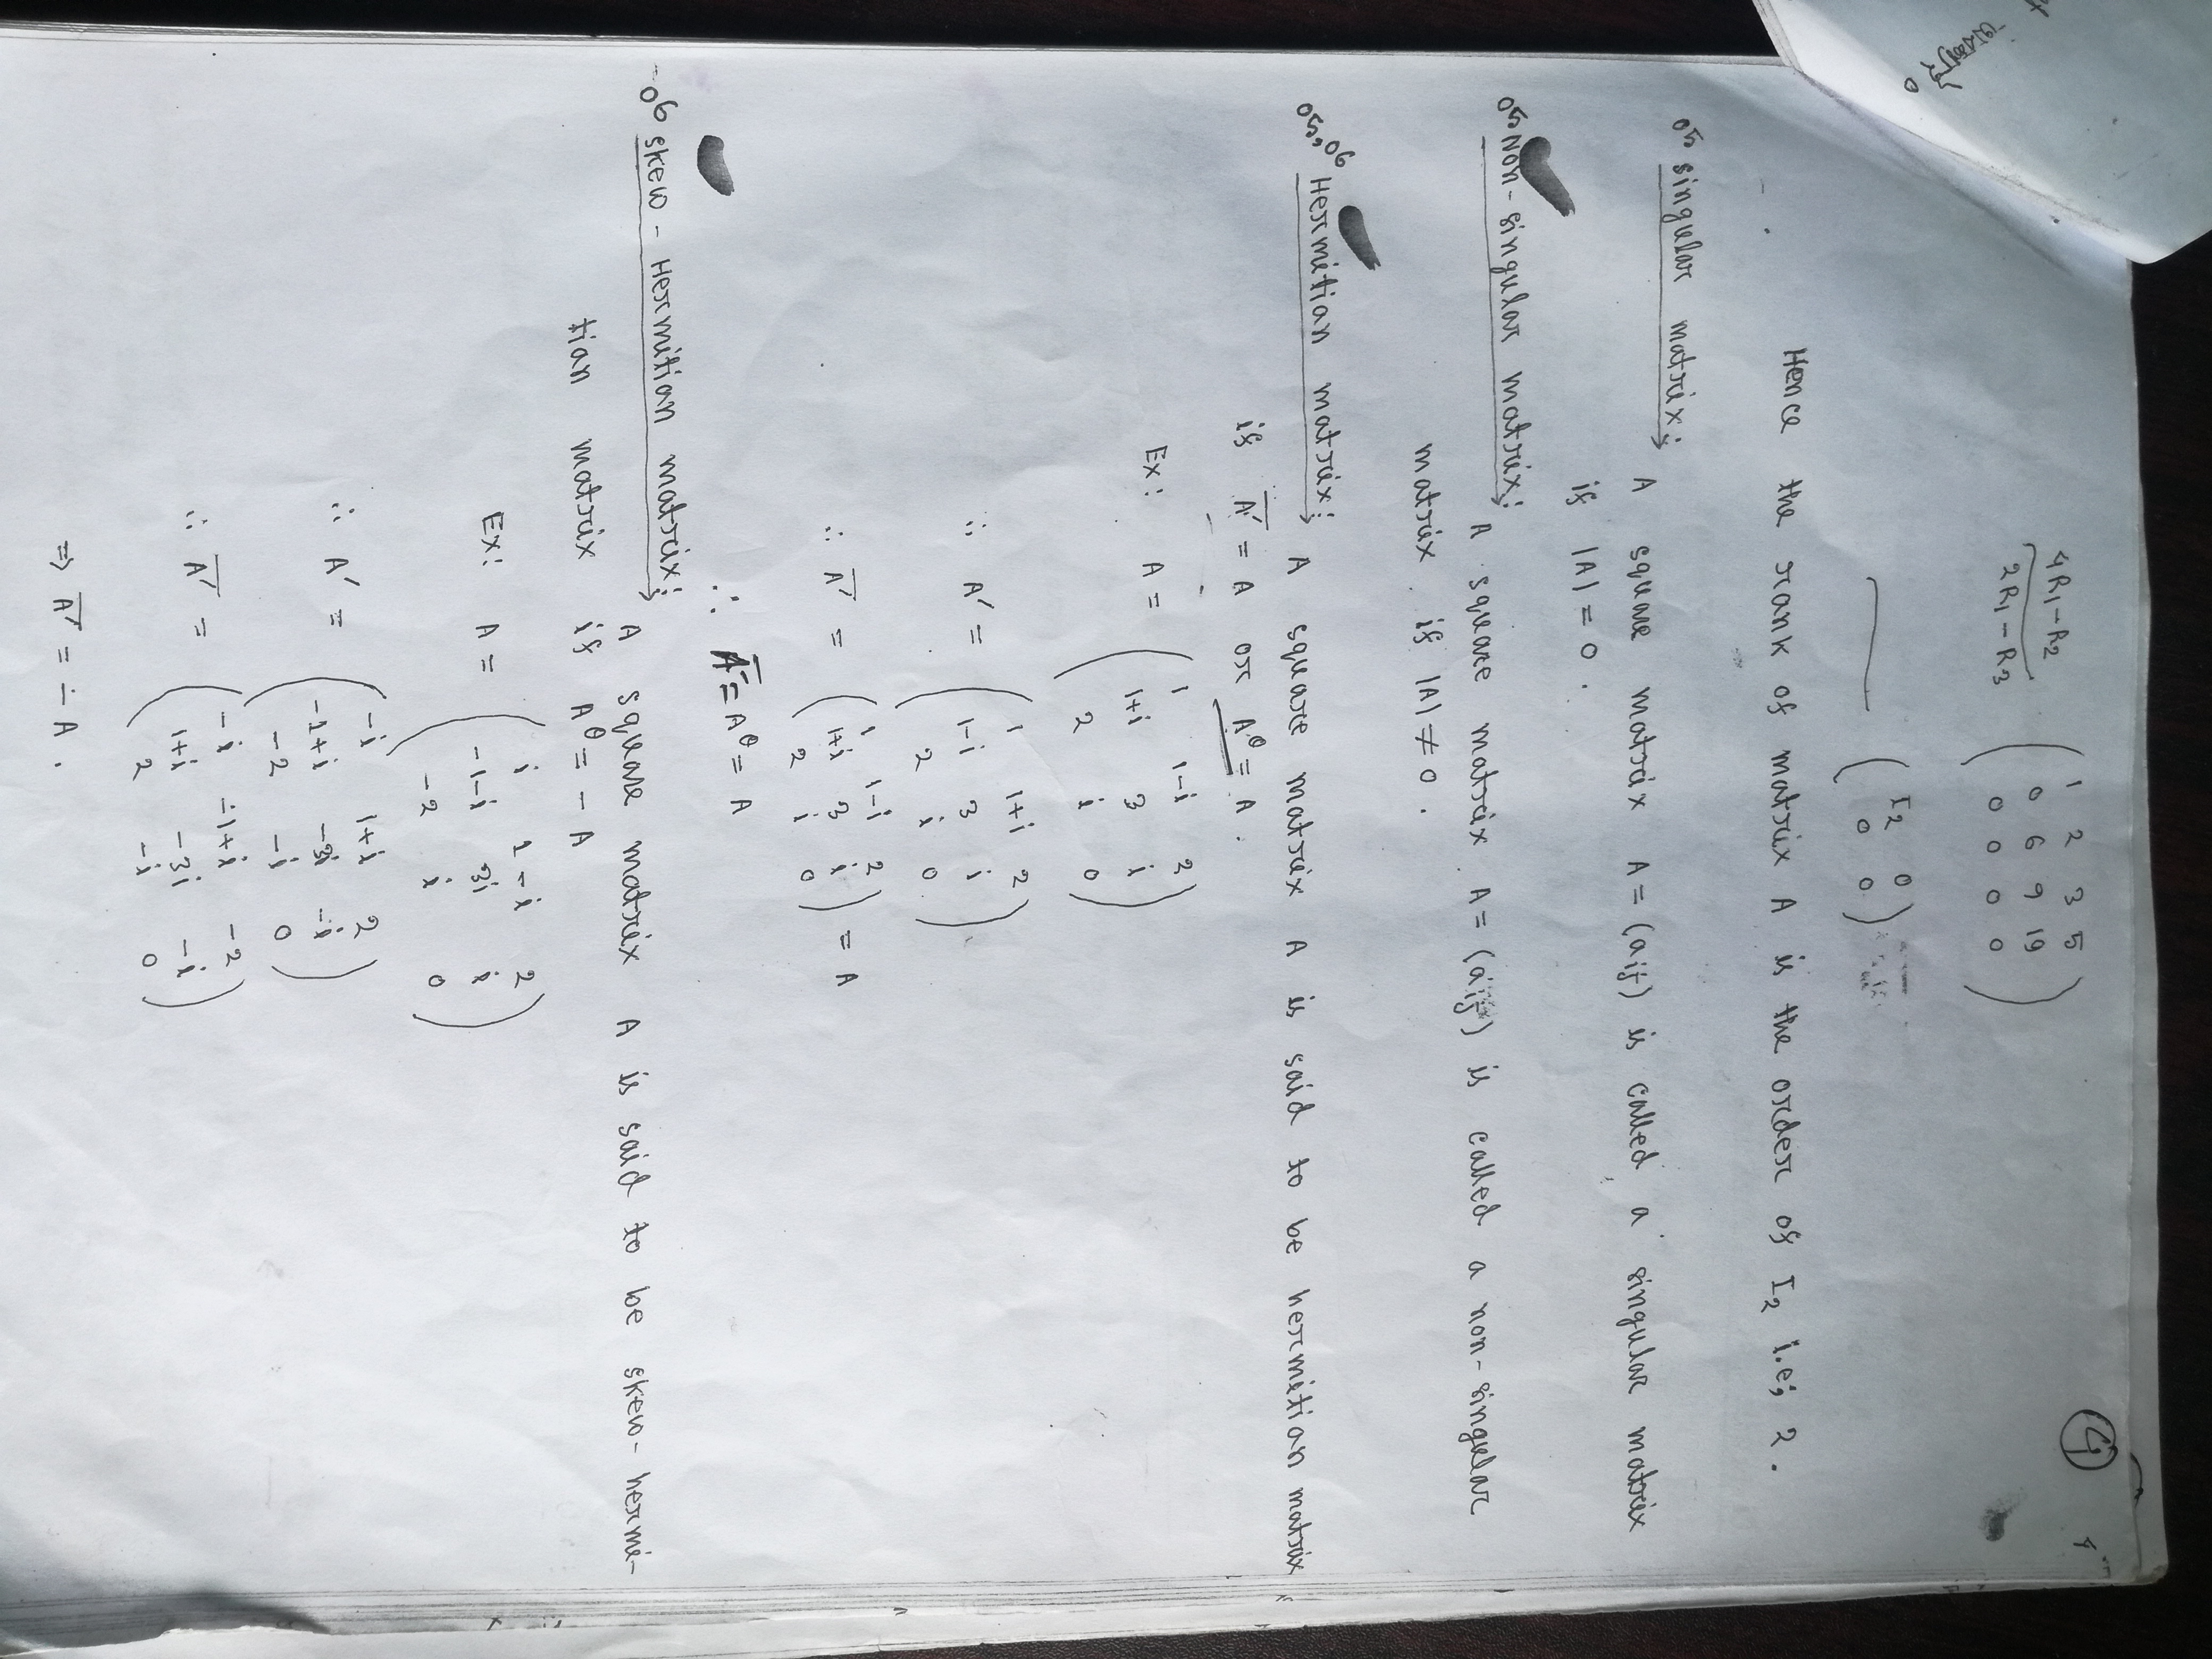 4
4
4R₁-R₂
2R₁-R₃
( 1 2 3 5
0 6 9 19
0 0 0 0 )
( I₂ 0
0 0 )
Hence the rank of matrix A is the order of I₂ i.e; 2.
05 singular matrix:
A square matrix A = (aij) is called a singular matrix
if |A| = 0.
05 Non-singular matrix:
A square matrix A = (aij) is called a non-singular
matrix if |A| ≠ 0.
05,06 Hermitian matrix:
A square matrix A is said to be hermitian matrix
if A̅′ = A or Aᶿ = A.
Ex: A = ( 1 1-i 2
1+i 3 i
2 i 0 )
∴ A′ = ( 1 1+i 2
1-i 3 i
2 i 0 )
∴ A̅′ = ( 1 1-i 2
1+i 3 i
2 i 0 ) = A
∴ A̅′ = Aᶿ = A
06 skew-Hermitian matrix:
A square matrix A is said to be skew-hermi-
tian matrix if Aᶿ = - A
Ex: A = ( i 1-i 2
-1-i 3i i
-2 i 0 )
∴ A′ = ( -i 1+i 2
-1+i -3i -i
-2 -i 0 )
∴ A̅′ = ( -i -1+i -2
1+i -3i -i
2 -i 0 )
⇒ A̅′ = - A.